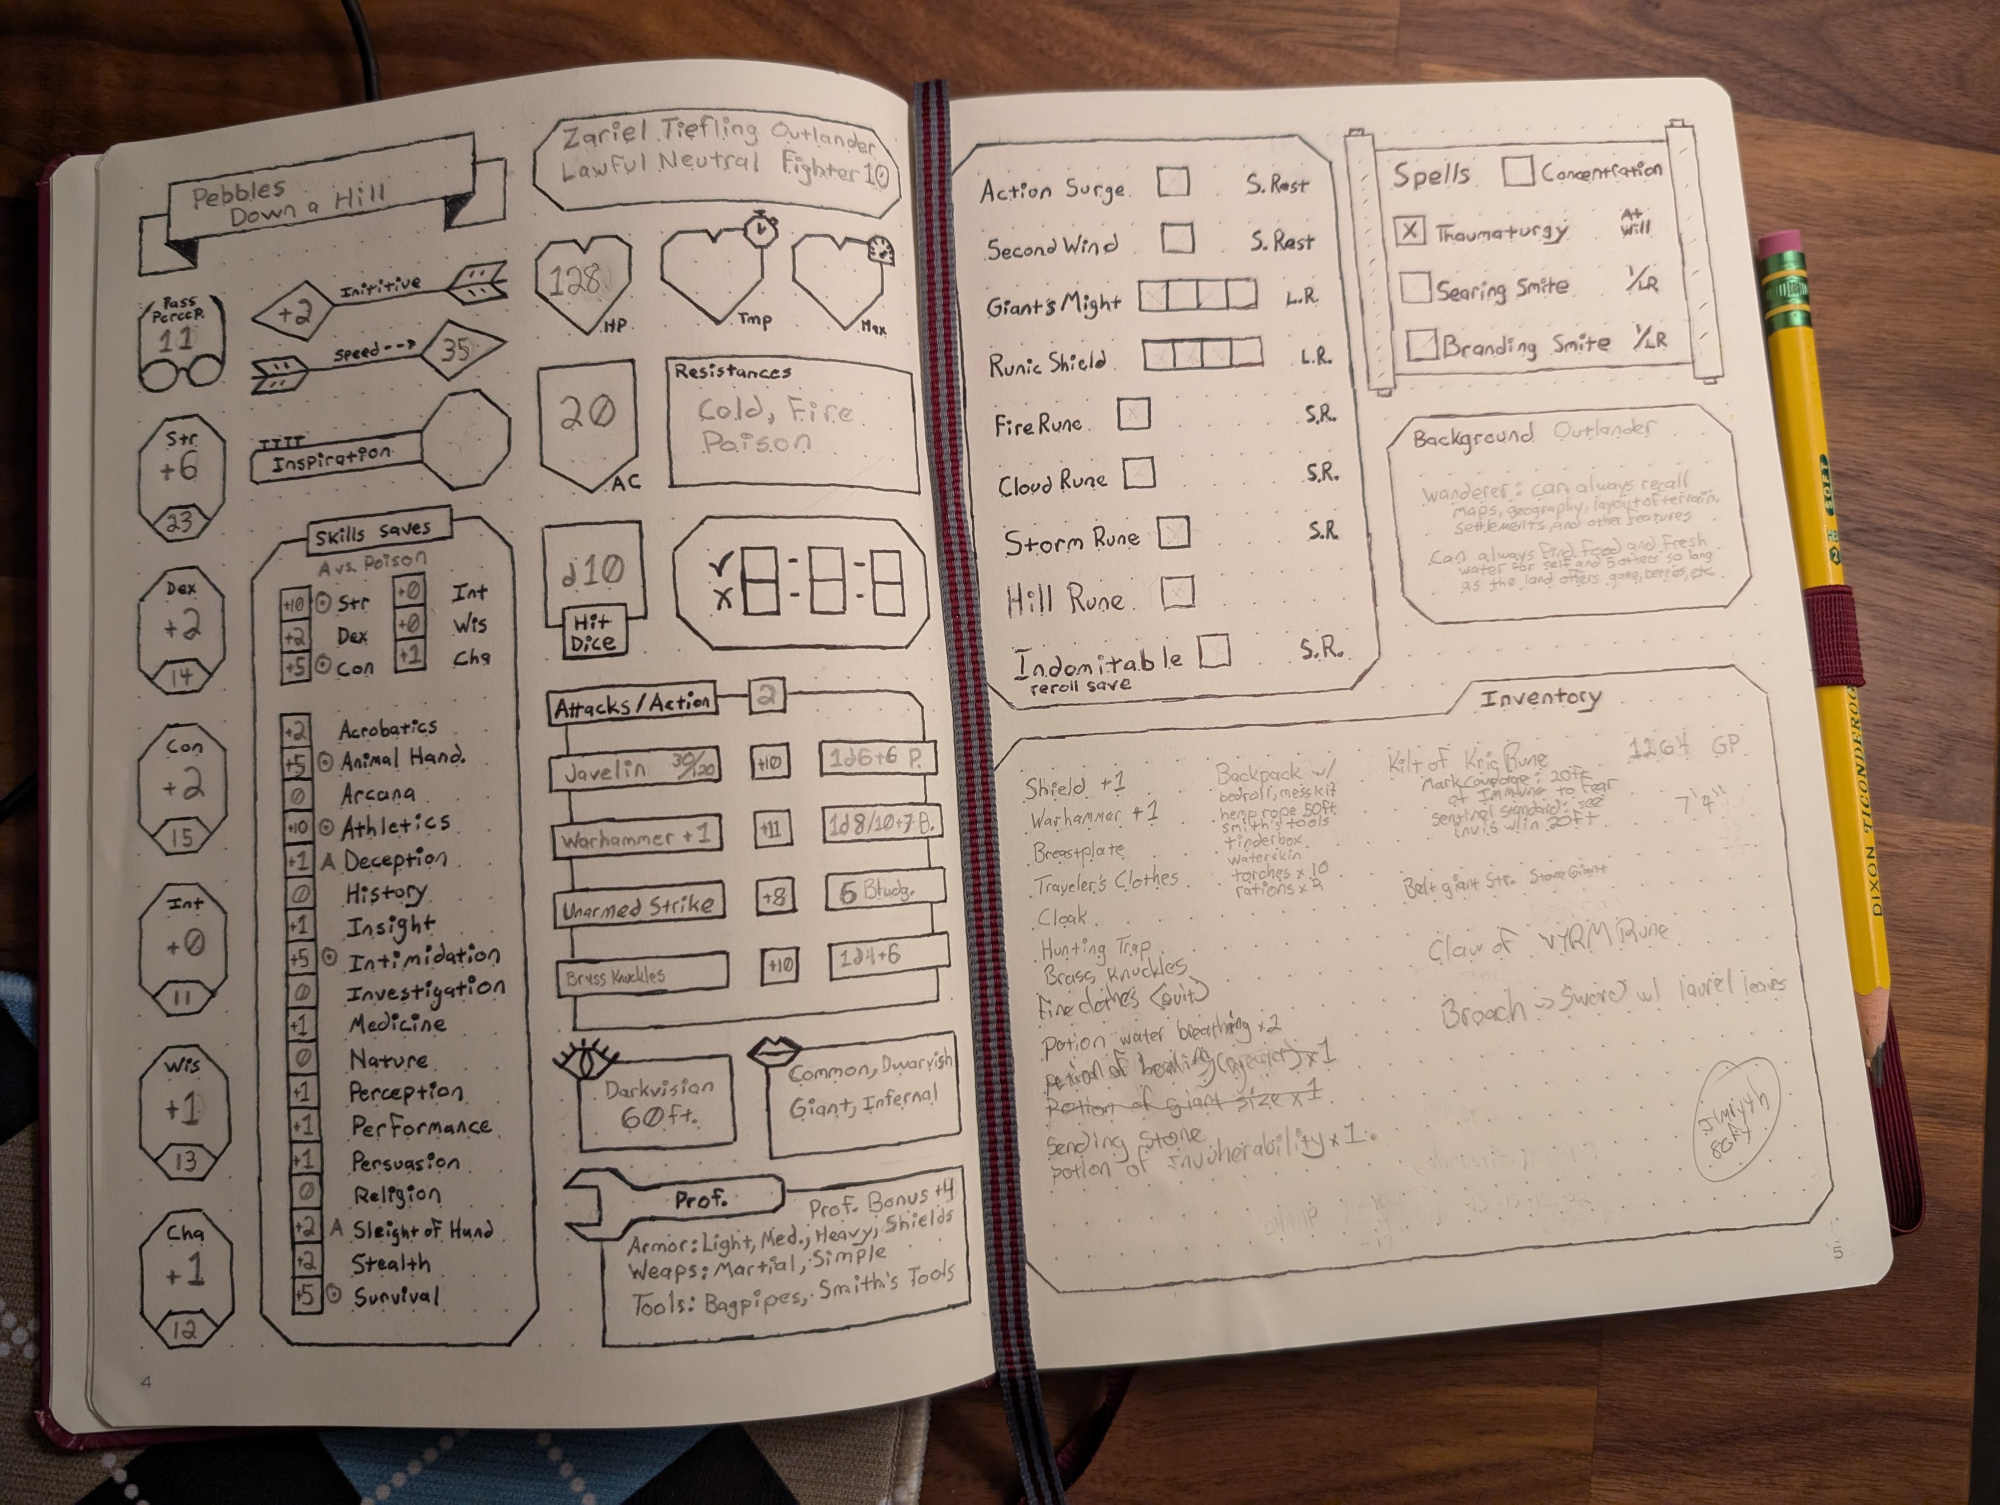 Pebbles
Down a Hill
Zariel Tiefling Outlander
Lawful Neutral Fighter 10
Pass
Percep.
11
Inititive
+2
Speed-->
35
Inspiration
128
HP
Tmp
Max
20
AC
Resistances
Cold, Fire
Poison
Str
+6
23
Dex
+2
14
Con
+2
15
Int
+0
11
Wis
+1
13
Cha
+1
12
Skills Saves
A vs. Poison
+10 Str
+2 Dex
+5 Con
+0 Int
+0 Wis
+1 Cha
+2 Acrobatics
+5 Animal Hand.
0 Arcana
+10 Athletics
+1 A Deception
0 History
+1 Insight
+5 Intimidation
0 Investigation
+1 Medicine
0 Nature
+1 Perception
+1 Performance
+1 Persuasion
0 Religion
+2 A Sleight of Hand
+2 Stealth
+5 Survival
d10
Hit
Dice
Attacks/Action 2
Javelin 30/120 +10 1d6+6 P.
Warhammer +1 +11 1d8/10+7 B.
Unarmed Strike +8 6 Bludg.
Brass Knuckles +10 1d4+6
Darkvision
60ft.
Common, Dwarvish
Giant, Infernal
Prof.
Prof. Bonus +4
Armor: Light, Med., Heavy, Shields
Weaps: Martial, Simple
Tools: Bagpipes, Smith's Tools
4
Action Surge S. Rest
Second Wind S. Rest
Giant's Might L.R.
Runic Shield L.R.
Fire Rune S.R.
Cloud Rune S.R.
Storm Rune S.R.
Hill Rune
Indomitable S.R.
reroll save
Spells Concentration
X Thaumaturgy At Will
Searing Smite 1/LR
Branding Smite 1/LR
Background Outlander
Wanderer: can always recall
maps, geography, layout of terrain,
settlements, and other features
Can always find food and fresh
water for self and 5 others so long
as the land offers game, berries, etc
Inventory
Shield +1
Warhammer +1
Breastplate
Traveler's Clothes
Cloak
Hunting Trap
Brass Knuckles
Fine clothes (suit)
Potion water breathing x2
potion of healing (greater) x1
Potion of giant size x1
Sending Stone
potion of Invulnerability x1
Backpack w/
bedroll, mess kit
hemp rope 50ft
smith's tools
tinderbox
waterskin
torches x 10
rations x 2
Kilt of Krig Rune
Mark Courage: 20ft
of Immune to fear
Sentinal standard: see
invis w/in 20ft
Belt giant Str. Stone Giant
Claw of WYRM Rune
Broach -> Sword w/ laurel leaves
1264 GP
7'4"
5
DIXON TICONDEROGA
SOFT